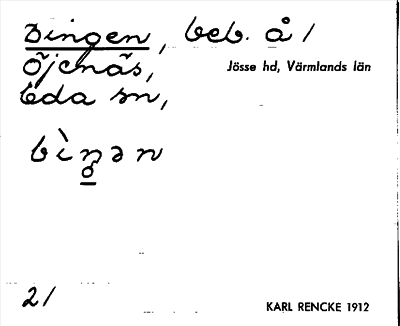 Bingen, beb. å /
Öjenäs,
Jösse hd, Värmlands län
Eda sn,
bìn̥ən
21
KARL RENCKE 1912